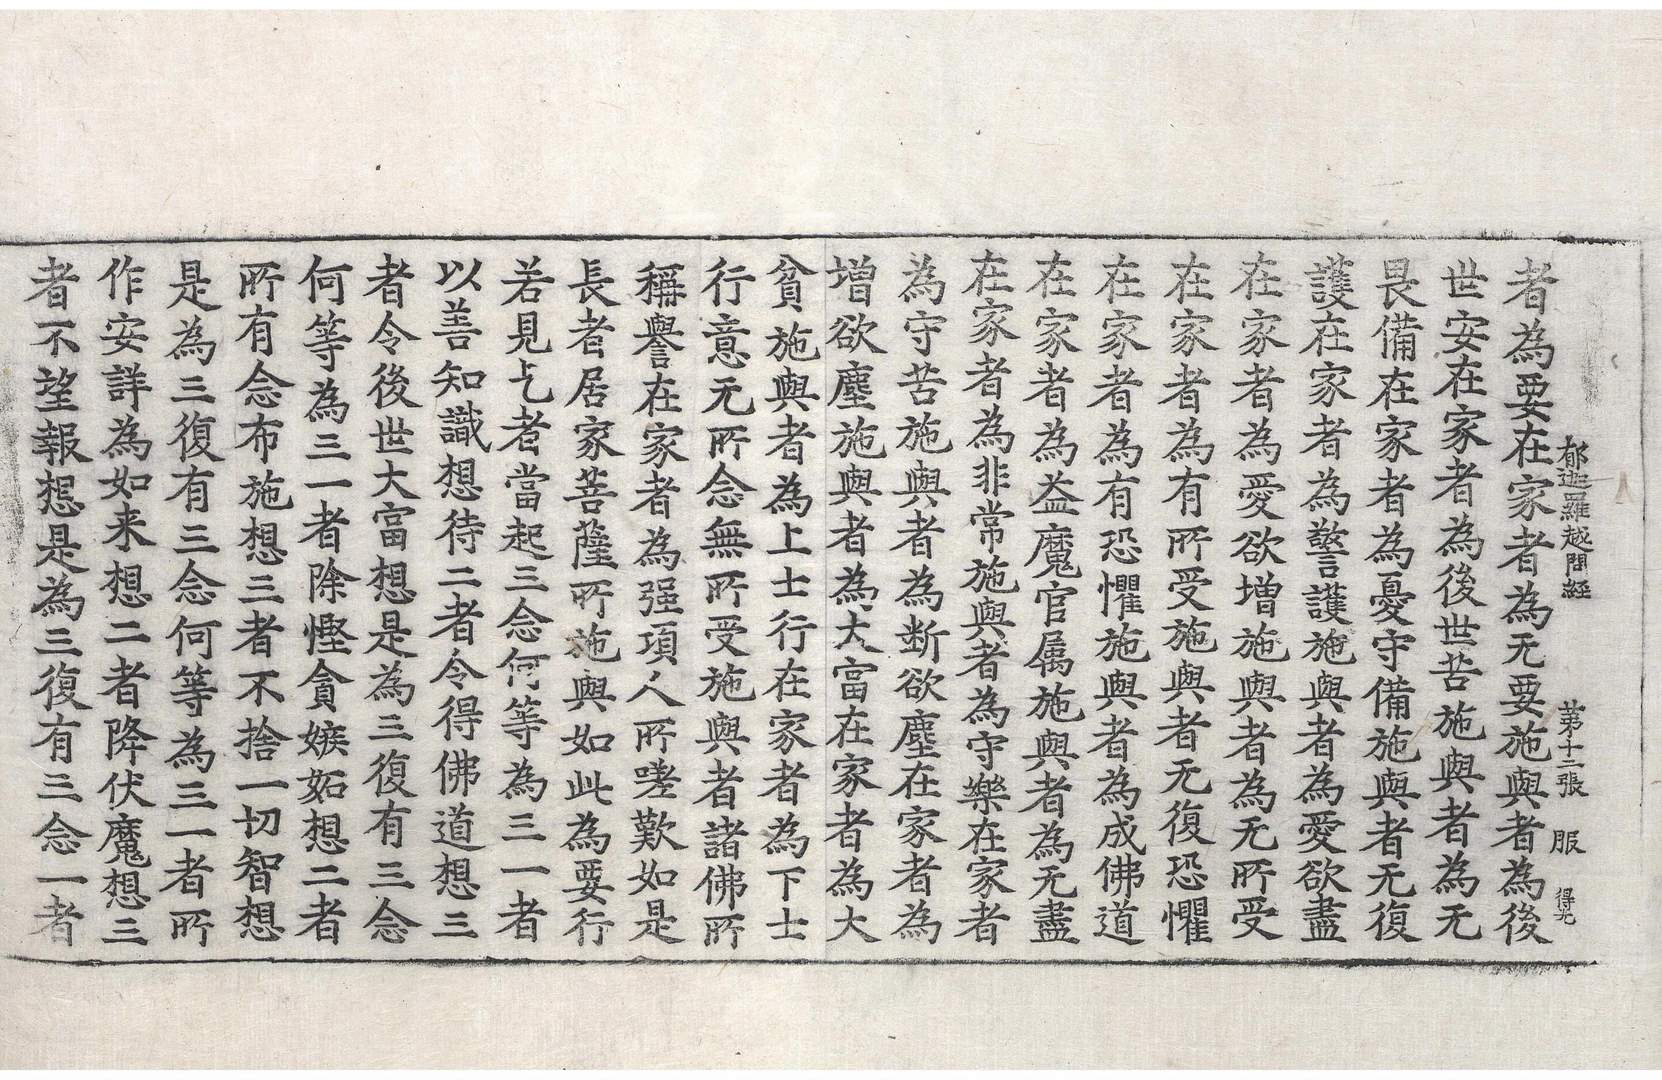 郁迦羅越問経 第十二張 服 得光
者為要在家者為无要施與者為後
世安在家者為後世苦施與者為无
畏備在家者為憂守備施與者无復
護在家者為警護施與者為愛欲盡
在家者為愛欲増施與者為无所受
在家者為有所受施與者无復恐懼
在家者為有恐懼施與者為成佛道
在家者為益魔官属施與者為无盡
在家者為非常施與者為守樂在家者
為守苦施與者為断欲塵在家者為
増欲塵施與者為大富在家者為大
貧施與者為上士行在家者為下士
行意无所念無所受施與者諸佛所
稱譽在家者為强項人所嗟歎如是
長者居家菩薩所施與如此為要行
若見乞者當起三念何等為三一者
以善知識想待二者令得佛道想三
者令後世大富想是為三復有三念
何等為三一者除慳貪嫉妬想二者
所有念布施想三者不捨一切智想
是為三復有三念何等為三一者所
作安詳為如来想二者降伏魔想三
者不望報想是為三復有三念一者